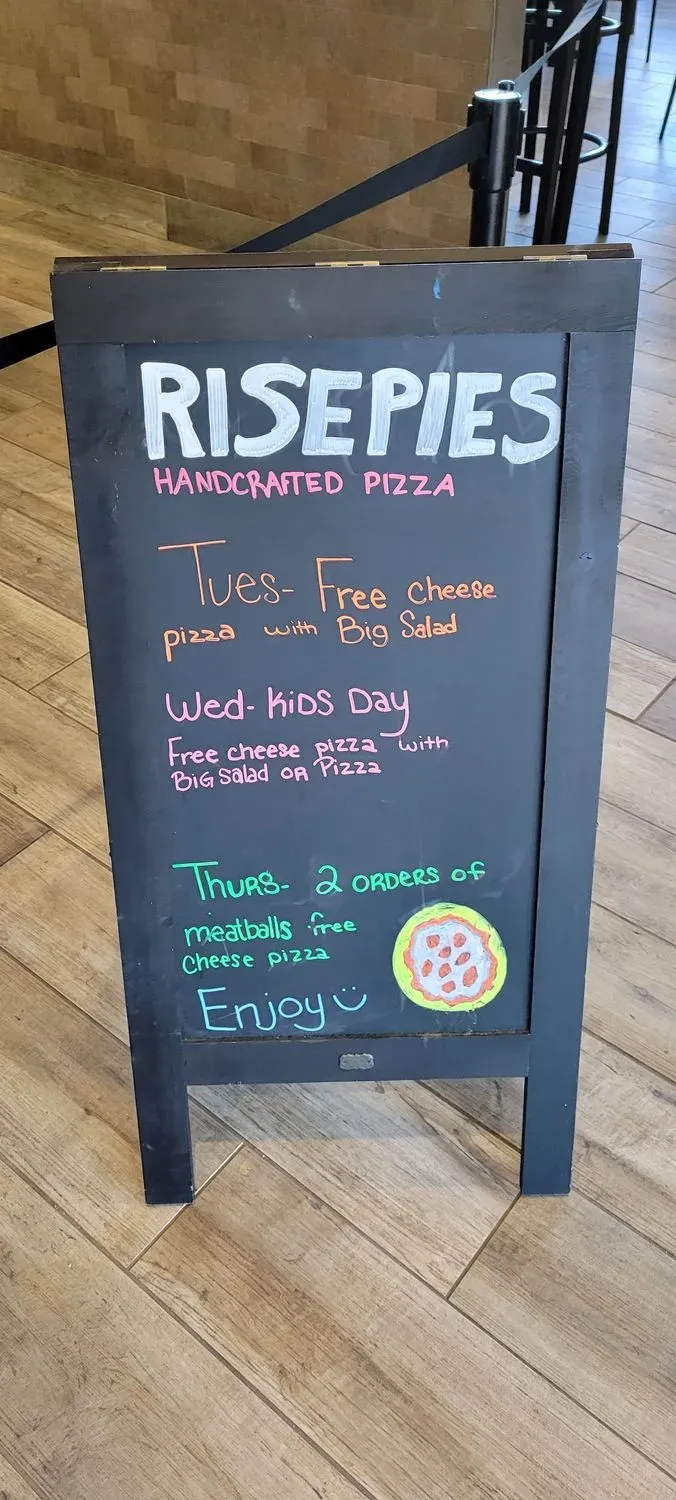 RISEPIES
HANDCRAFTED PIZZA
Tues- Free cheese
pizza with Big Salad
Wed- KiDS Day
Free cheese pizza with
BiG salad OR Pizza
Thurs- 2 ORDERS of
meatballs free
cheese pizza
Enjoy